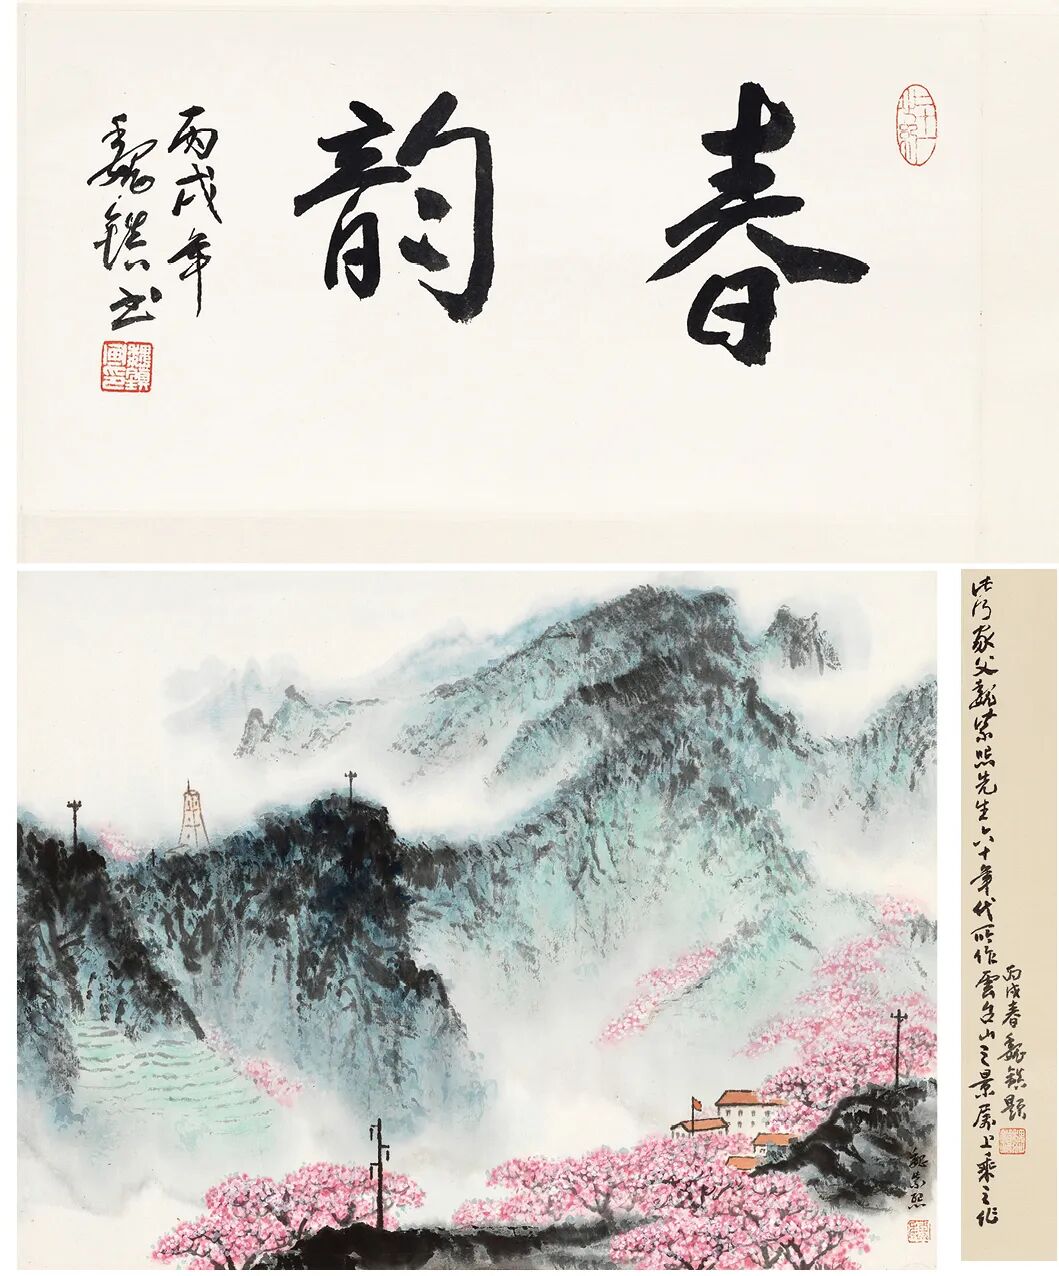 春韵
丙戌年
魏镇书
魏鎮画印
此乃家父魏紫熙先生六十年代所作雲台山之景属上乘之作
丙戌春魏镇题
魏紫熙